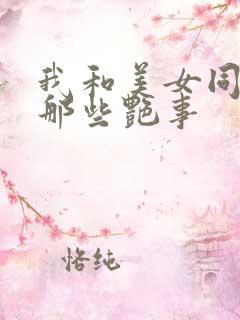 我和美女同
那些艷事
恪纯